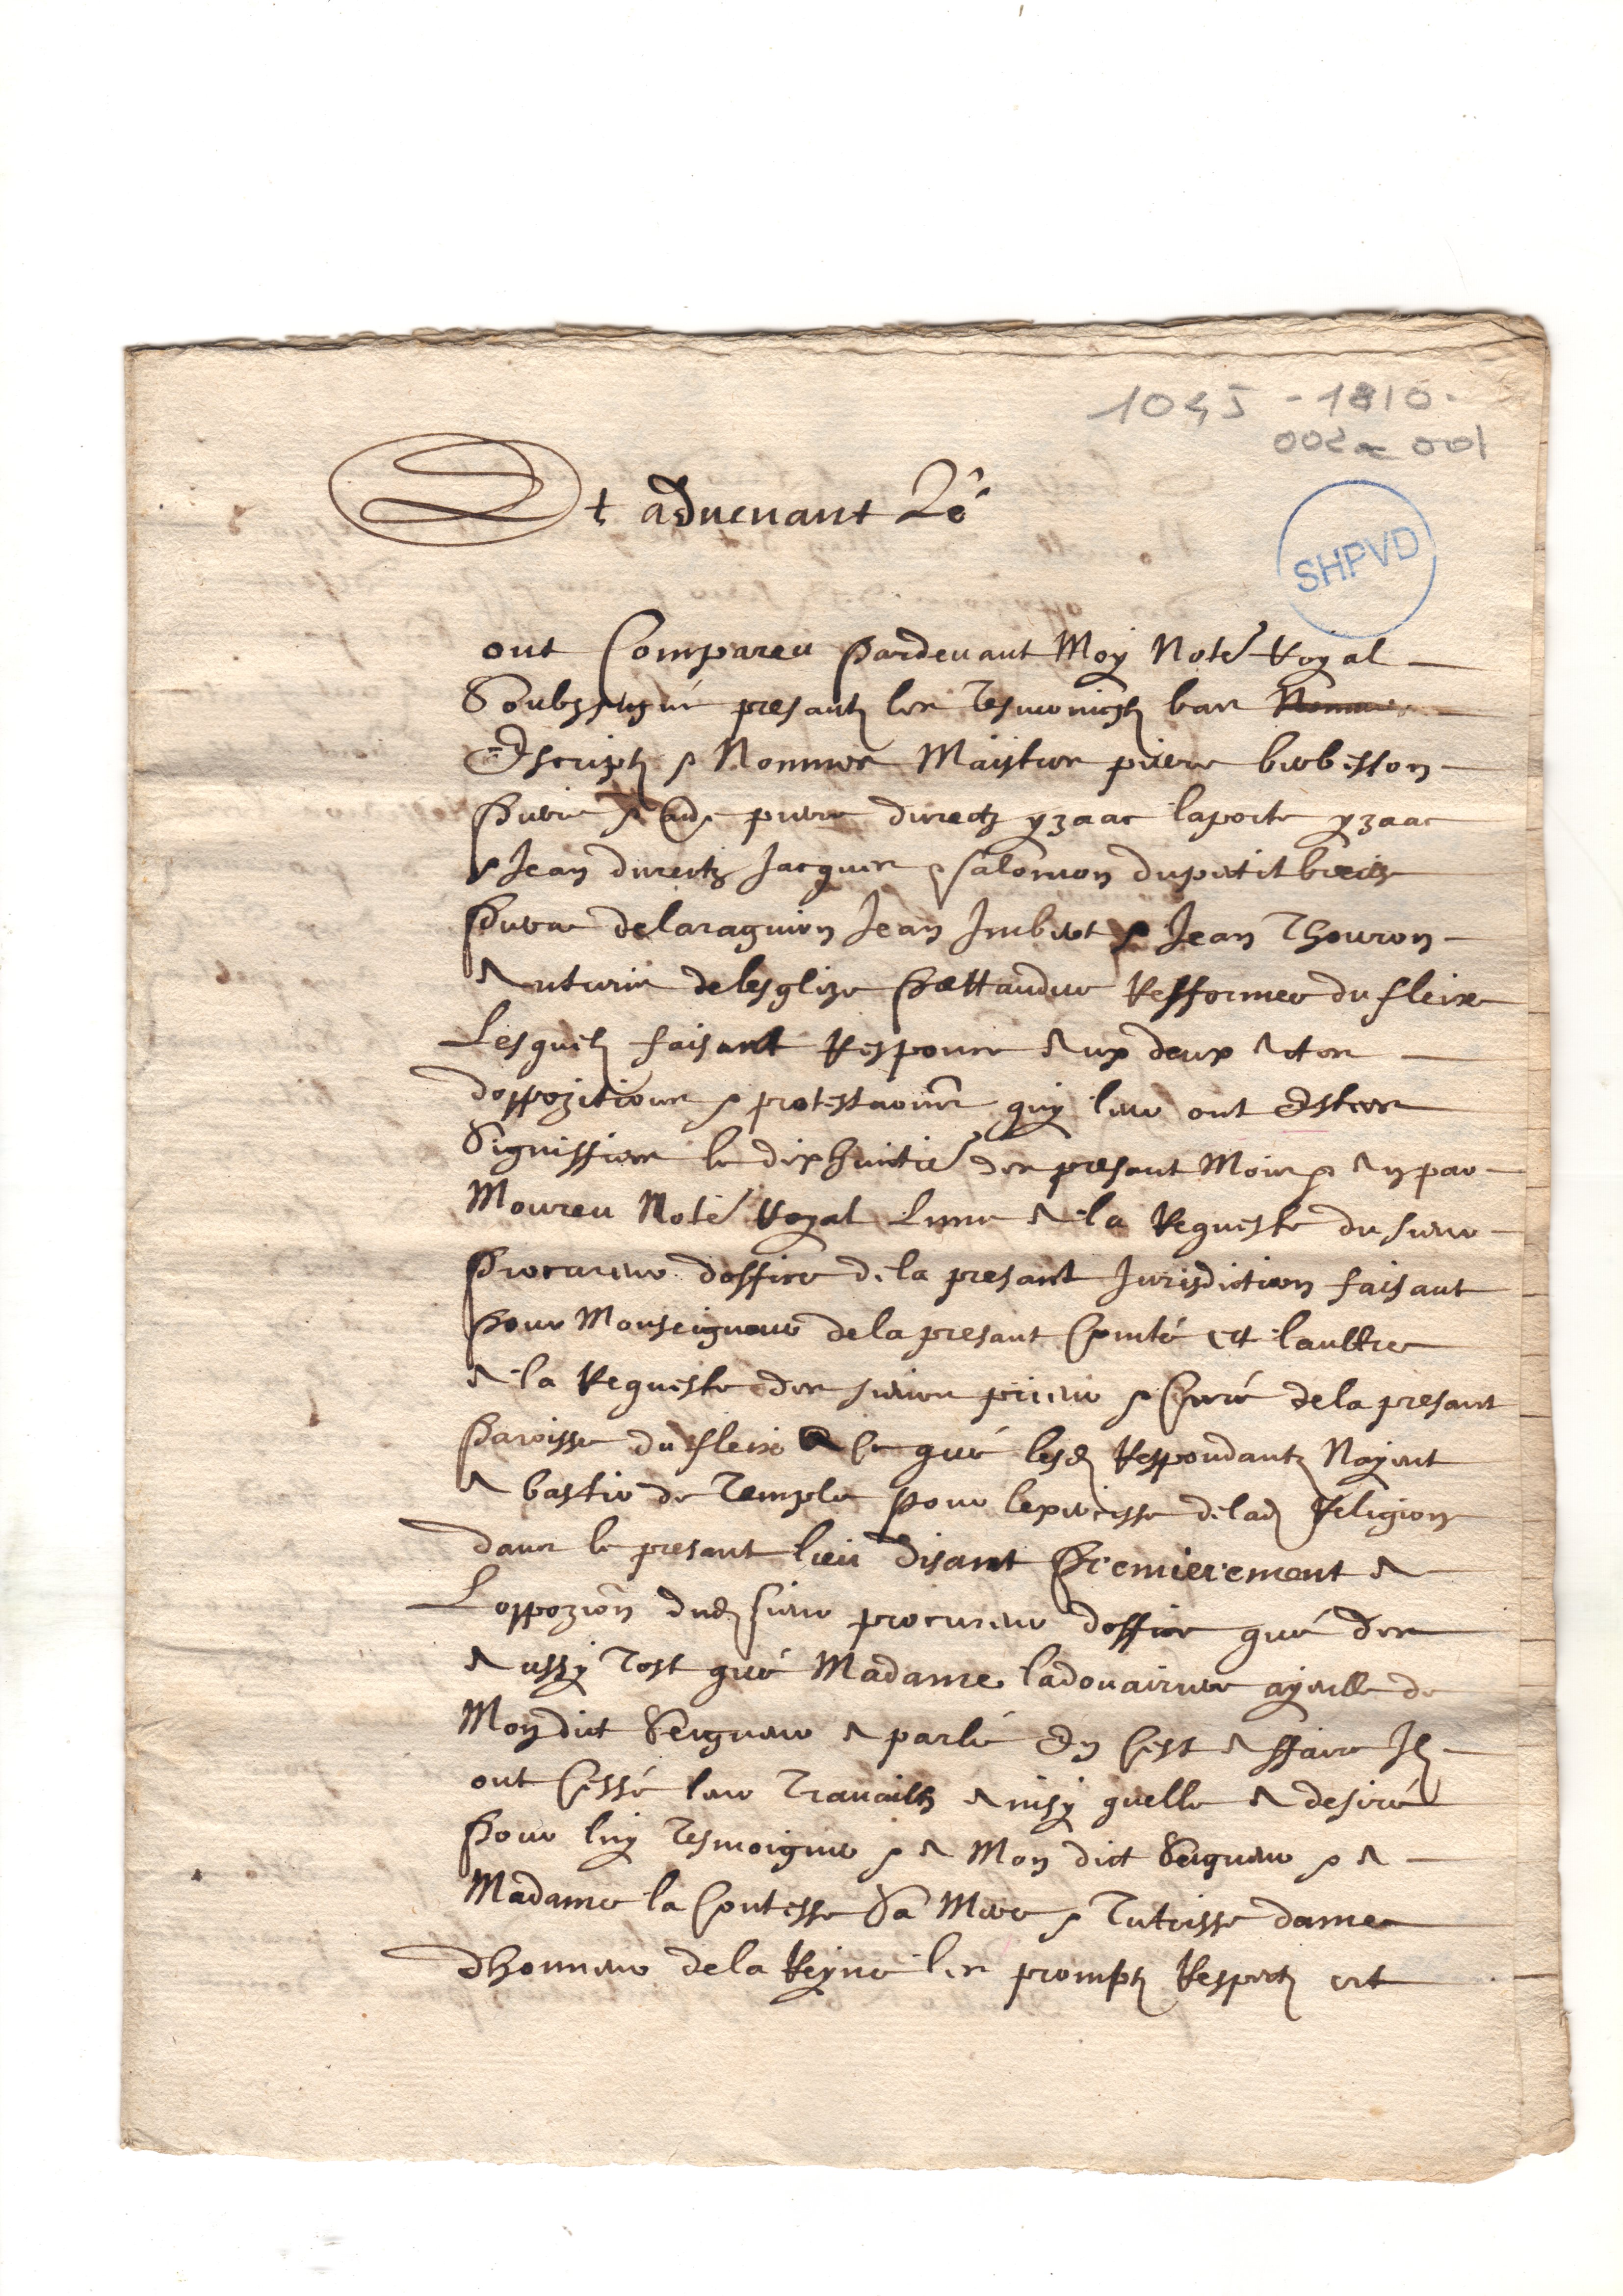 1045 - 1810.
002 001
SHPVD
Et advenant Le
ont Compareu pardevant Moy Noté Royal
Soubzsigné presantz les tesmoingz bas
Escriptz & Nommes Maistres pierre
pierre & autre pierre durectz yzaac laporte yzaac
& Jean dureitz Jacques & salomon dupetit breilz
pierre delaraguion Jean Imbert & Jean Thouron
Antiens delesglize prettandue Refformee dufleix
Lesquelz faisant Responce Aux deux Actes
doppozitions & protestaõns quy leur ont Estees
Signiffiees le dixhuitié des presant Mois & An par
Moureu Noté Royal Lune A la Requeste du sieur
procureur doffice dela presant Jurisdiction faisant
pour Monseigneur dela presant Comté et laultre
A la Requeste des sieurs prieur & Curé dela presant
paroisse du fleix A Ce qué lesd Respondantz Nayent
A bastir de Temple pour lexercisse delad Religion
dans le presant lieu disant premierement A
Loppozion dud sieur procureur doffice qué des
Aussy tost qué Madame ladouairiere ayeulle de
Mondict Seigneur A parlé En Cest Affaire Ilz
ont Cessé leur Travailh Ainsy quelle A desiré
pour luy Tesmoigner & A Mon dict Seigneur & A
Madame la Contesse Sa Mere & Tutrisse dame
dhonneur dela Reyne les promptz Respectz et